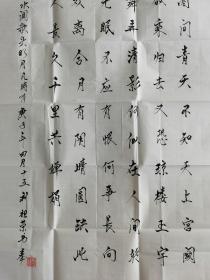 問青天不知天上宮闕
乘歸去又恐瓊樓玉宇
弄清影何似在人間
無眠不應有恨何事長向
離合月有陰晴圓缺此
人長久千里共嬋娟
水調歌頭明月幾時有庚子年四月十五